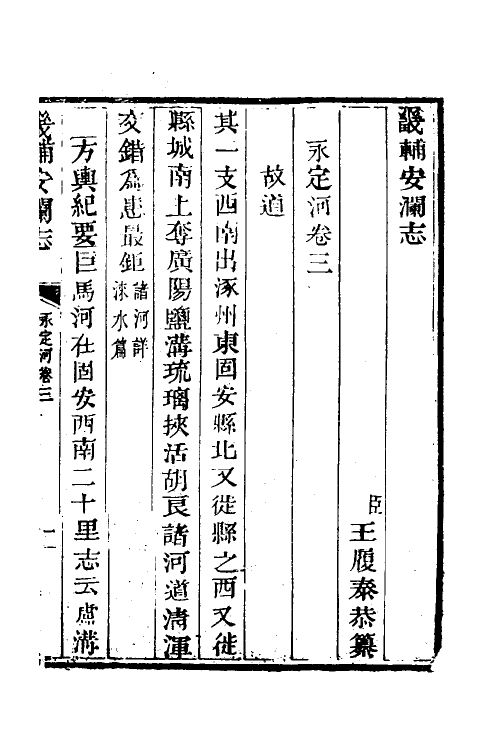 畿輔安瀾志
臣王履泰恭纂
永定河卷三
故道
其一支西南出涿州東固安縣北又徙縣之西又徙
縣城南上奪廣陽鹽溝琉璃挾活胡良諸河道淸渾
交錯爲患最鉅諸河詳
淶水篇
方輿紀要巨馬河在固安西南二十里志云盧溝
畿輔安瀾志
永定河卷三
一